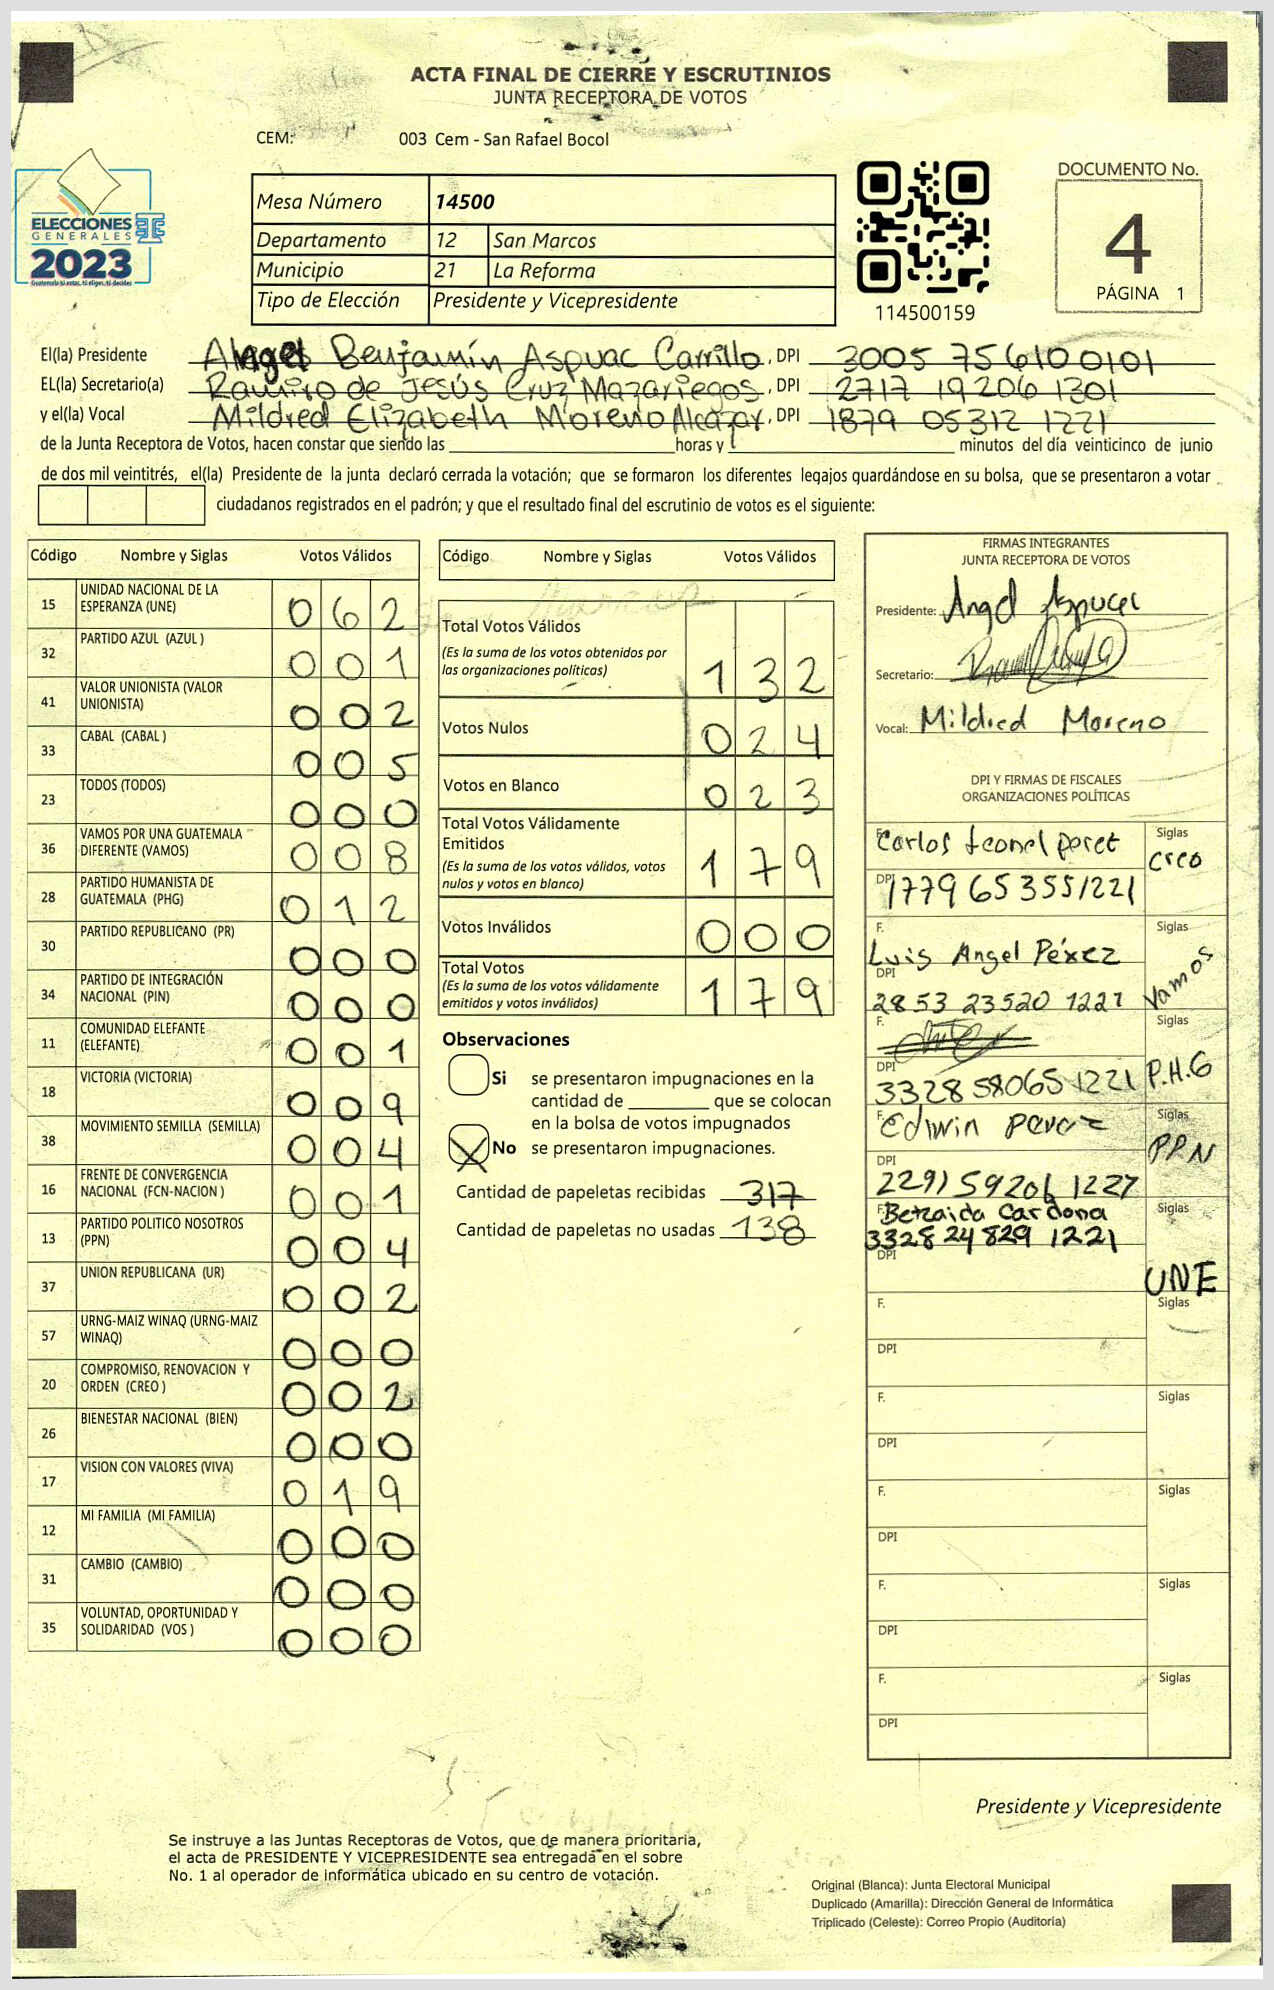 ACTA FINAL DE CIERRE Y ESCRUTINIOS
JUNTA RECEPTORA DE VOTOS
CEM: 003 Cem - San Rafael Bocol
ELECCIONES
GENERALES
2023
Guatemala tú estas, tú eliges, tú decides
Mesa Número 14500
Departamento 12 San Marcos
Municipio 21 La Reforma
Tipo de Elección Presidente y Vicepresidente
114500159
DOCUMENTO No.
4
PÁGINA 1
El(la) Presidente Angel Benjamín Aspuac Carrillo, DPI 3005 75610 0101
EL(la) Secretario(a) Ramiro de Jesús Cruz Mazariegos, DPI 2717 19206 1301
y el(la) Vocal Mildred Elizabeth Moreno Alcázar, DPI 1879 05312 1221
de la Junta Receptora de Votos, hacen constar que siendo las horas y minutos del día veinticinco de junio
de dos mil veintitrés, el(la) Presidente de la junta declaró cerrada la votación; que se formaron los diferentes legajos guardándose en su bolsa, que se presentaron a votar
ciudadanos registrados en el padrón; y que el resultado final del escrutinio de votos es el siguiente:
Código Nombre y Siglas Votos Válidos
15 UNIDAD NACIONAL DE LA ESPERANZA (UNE) 0 6 2
32 PARTIDO AZUL (AZUL ) 0 0 1
41 VALOR UNIONISTA (VALOR UNIONISTA) 0 0 2
33 CABAL (CABAL ) 0 0 5
23 TODOS (TODOS) 0 0 0
36 VAMOS POR UNA GUATEMALA DIFERENTE (VAMOS) 0 0 8
28 PARTIDO HUMANISTA DE GUATEMALA (PHG) 0 1 2
30 PARTIDO REPUBLICANO (PR) 0 0 0
34 PARTIDO DE INTEGRACIÓN NACIONAL (PIN) 0 0 0
11 COMUNIDAD ELEFANTE (ELEFANTE) 0 0 1
18 VICTORIA (VICTORIA) 0 0 9
38 MOVIMIENTO SEMILLA (SEMILLA) 0 0 4
16 FRENTE DE CONVERGENCIA NACIONAL (FCN-NACION ) 0 0 1
13 PARTIDO POLITICO NOSOTROS (PPN) 0 0 4
37 UNION REPUBLICANA (UR) 0 0 2
57 URNG-MAIZ WINAQ (URNG-MAIZ WINAQ) 0 0 0
20 COMPROMISO, RENOVACION Y ORDEN (CREO ) 0 0 2
26 BIENESTAR NACIONAL (BIEN) 0 0 0
17 VISION CON VALORES (VIVA) 0 1 9
12 MI FAMILIA (MI FAMILIA) 0 0 0
31 CAMBIO (CAMBIO) 0 0 0
35 VOLUNTAD, OPORTUNIDAD Y SOLIDARIDAD (VOS ) 0 0 0
Código Nombre y Siglas Votos Válidos
Total Votos Válidos 1 3 2
(Es la suma de los votos obtenidos por
las organizaciones políticas)
Votos Nulos 0 2 4
Votos en Blanco 0 2 3
Total Votos Válidamente
Emitidos 1 7 9
(Es la suma de los votos válidos, votos
nulos y votos en blanco)
Votos Inválidos 0 0 0
Total Votos 1 7 9
(Es la suma de los votos válidamente
emitidos y votos inválidos)
Observaciones
Si se presentaron impugnaciones en la
cantidad de que se colocan
en la bolsa de votos impugnados
X No se presentaron impugnaciones.
Cantidad de papeletas recibidas 317
Cantidad de papeletas no usadas 138
FIRMAS INTEGRANTES
JUNTA RECEPTORA DE VOTOS
Presidente: Angel Aspuac
Secretario:
Vocal: Mildred Moreno
DPI Y FIRMAS DE FISCALES
ORGANIZACIONES POLÍTICAS
F. Carlos Leonel Siglas creo
DPI 1779 65355 1221
F. Luis Angel Pérez Siglas Vamos
DPI 2853 23520 1221
F. Siglas P.H.G
DPI 3328 58065 1221
F. Edwin Perez Siglas PPN
DPI 2291 59206 1227
F. Betzaida Cardona Siglas UNE
DPI 3328 24829 1221
F. Siglas
DPI
F. Siglas
DPI
F. Siglas
DPI
F. Siglas
DPI
F. Siglas
DPI
Presidente y Vicepresidente
Se instruye a las Juntas Receptoras de Votos, que de manera prioritaria,
el acta de PRESIDENTE Y VICEPRESIDENTE sea entregada en el sobre
No. 1 al operador de informática ubicado en su centro de votación.
Original (Blanca): Junta Electoral Municipal
Duplicado (Amarilla): Dirección General de Informática
Triplicado (Celeste): Correo Propio (Auditoría)